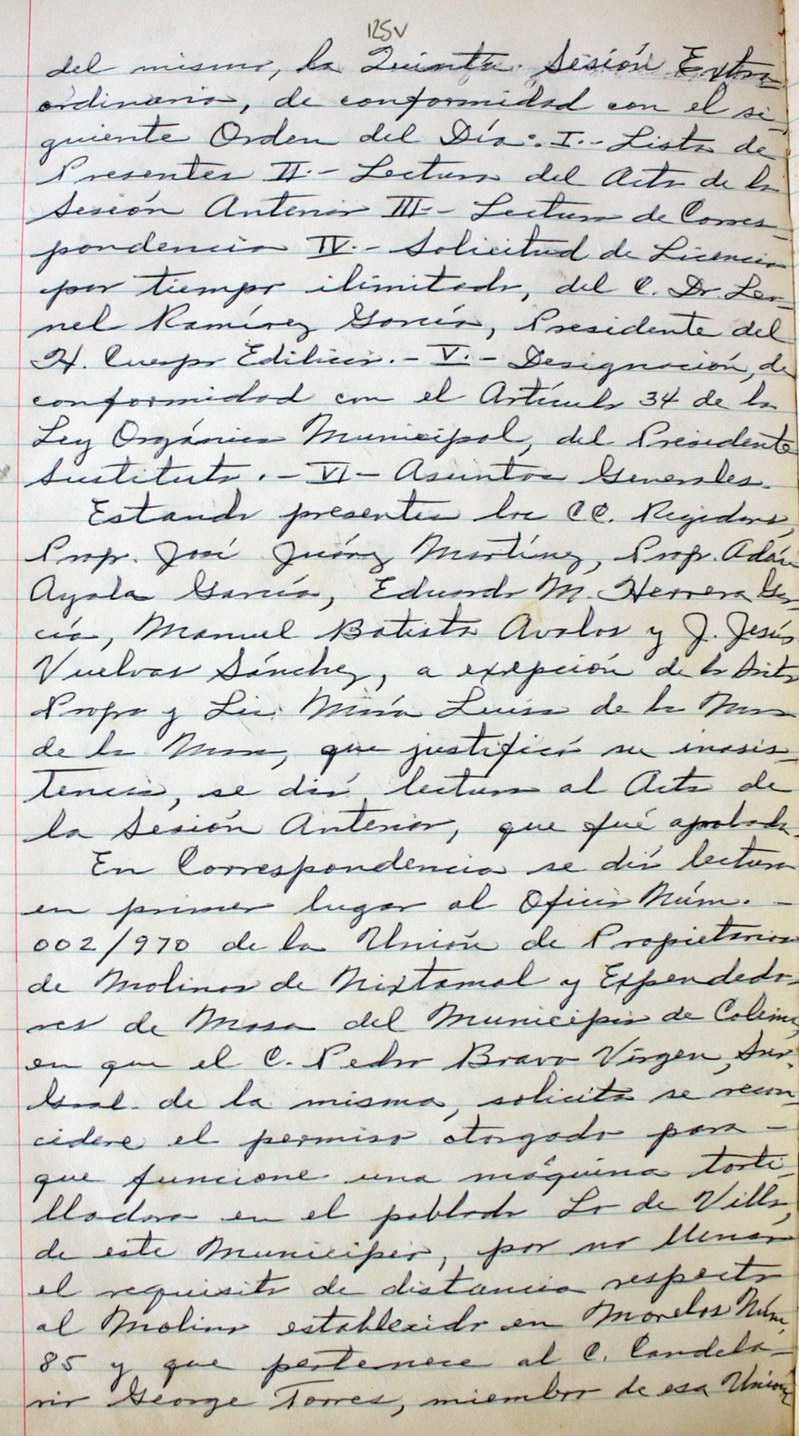 125V
del mismo, la Quinta Sesión Extra-
ordinaria, de conformidad con el si-
guiente Orden del Día: I.- Lista de
Presentes II.- Lectura del Acta de la
Sesión Anterior III.- Lectura de Corres-
pondencia IV.- Solicitud de Licencia
por tiempo ilimitado, del C. Dr. Leo-
nel Ramírez García, Presidente del
H. Cuerpo Edilicio.- V.- Designación, de
conformidad con el Artículo 34 de la
Ley Orgánica Municipal, del Presidente
Sustituto.- VI- Asuntos Generales.
Estando presentes los CC. Regidores,
Prof. José Juárez Martínez, Prof. Adán
Ayala García, Eduardo M. Herrera Gar-
cía, Manuel Batista Avalos y J. Jesús
Vuelvas Sánchez, a exepción de la Srita
Profa y Lic. María Luisa de la Mora
de la Mora, que justificó su inasis-
tencia, se dió lectura al Acta de
la Sesión Anterior, que fué aprobada.
En Correspondencia se dió lectura
en primer lugar al Oficio Núm. -
002/970 de la Unión de Propietarios
de Molinos de Nixtamal y Expendedo-
res de Masa del Municipio de Colima,
en que el C. Pedro Bravo Virgen, Srio.
Gral. de la misma, solicita se recon-
cidere el permiso otorgado para -
que funcione una máquina torti-
lladora en el poblado Lo de Villa,
de este Municipio, por no llenar
el requisito de distancia respecto
al Molino establecido en Morelos Núm.
85 y que pertenece al C. Candela-
rio George Torres, miembro de esa Unión